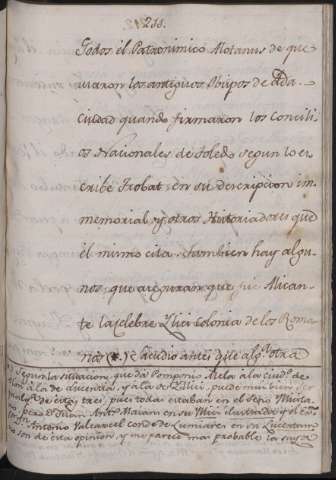 211.
todos él Patronimico Alotanus de que
usaron los antiguos Obispos de dha
ciudad quando firmaron los Concili
os Nacionales de Toledo segun lo es
cribe Trobat en su descripcion im
memorial y otros Historiadores que
él mismo cita. Tambien hay algu
nos, que aseguran que fué Alican
te la celebre Ylici Colonia de los Roma
nos (*.) é acudio antes que algª otra
(*) Segun la situacion que dá Pomponio Mela a la ciudd. de
Alon, á la de Lucentia, y á la de Yllici, puede mui bien ser
qualqª de estas tres, pues todas estaban en el Seno Ylicita
no, pero Dn. Juan Antº Maians en su Ylici ilustrada y el Exmo
Sr. Dn. Antonio Valcarcel conde de Lumiares en su Lucentum
no son de esta opinion, y me parece mas probable la suya